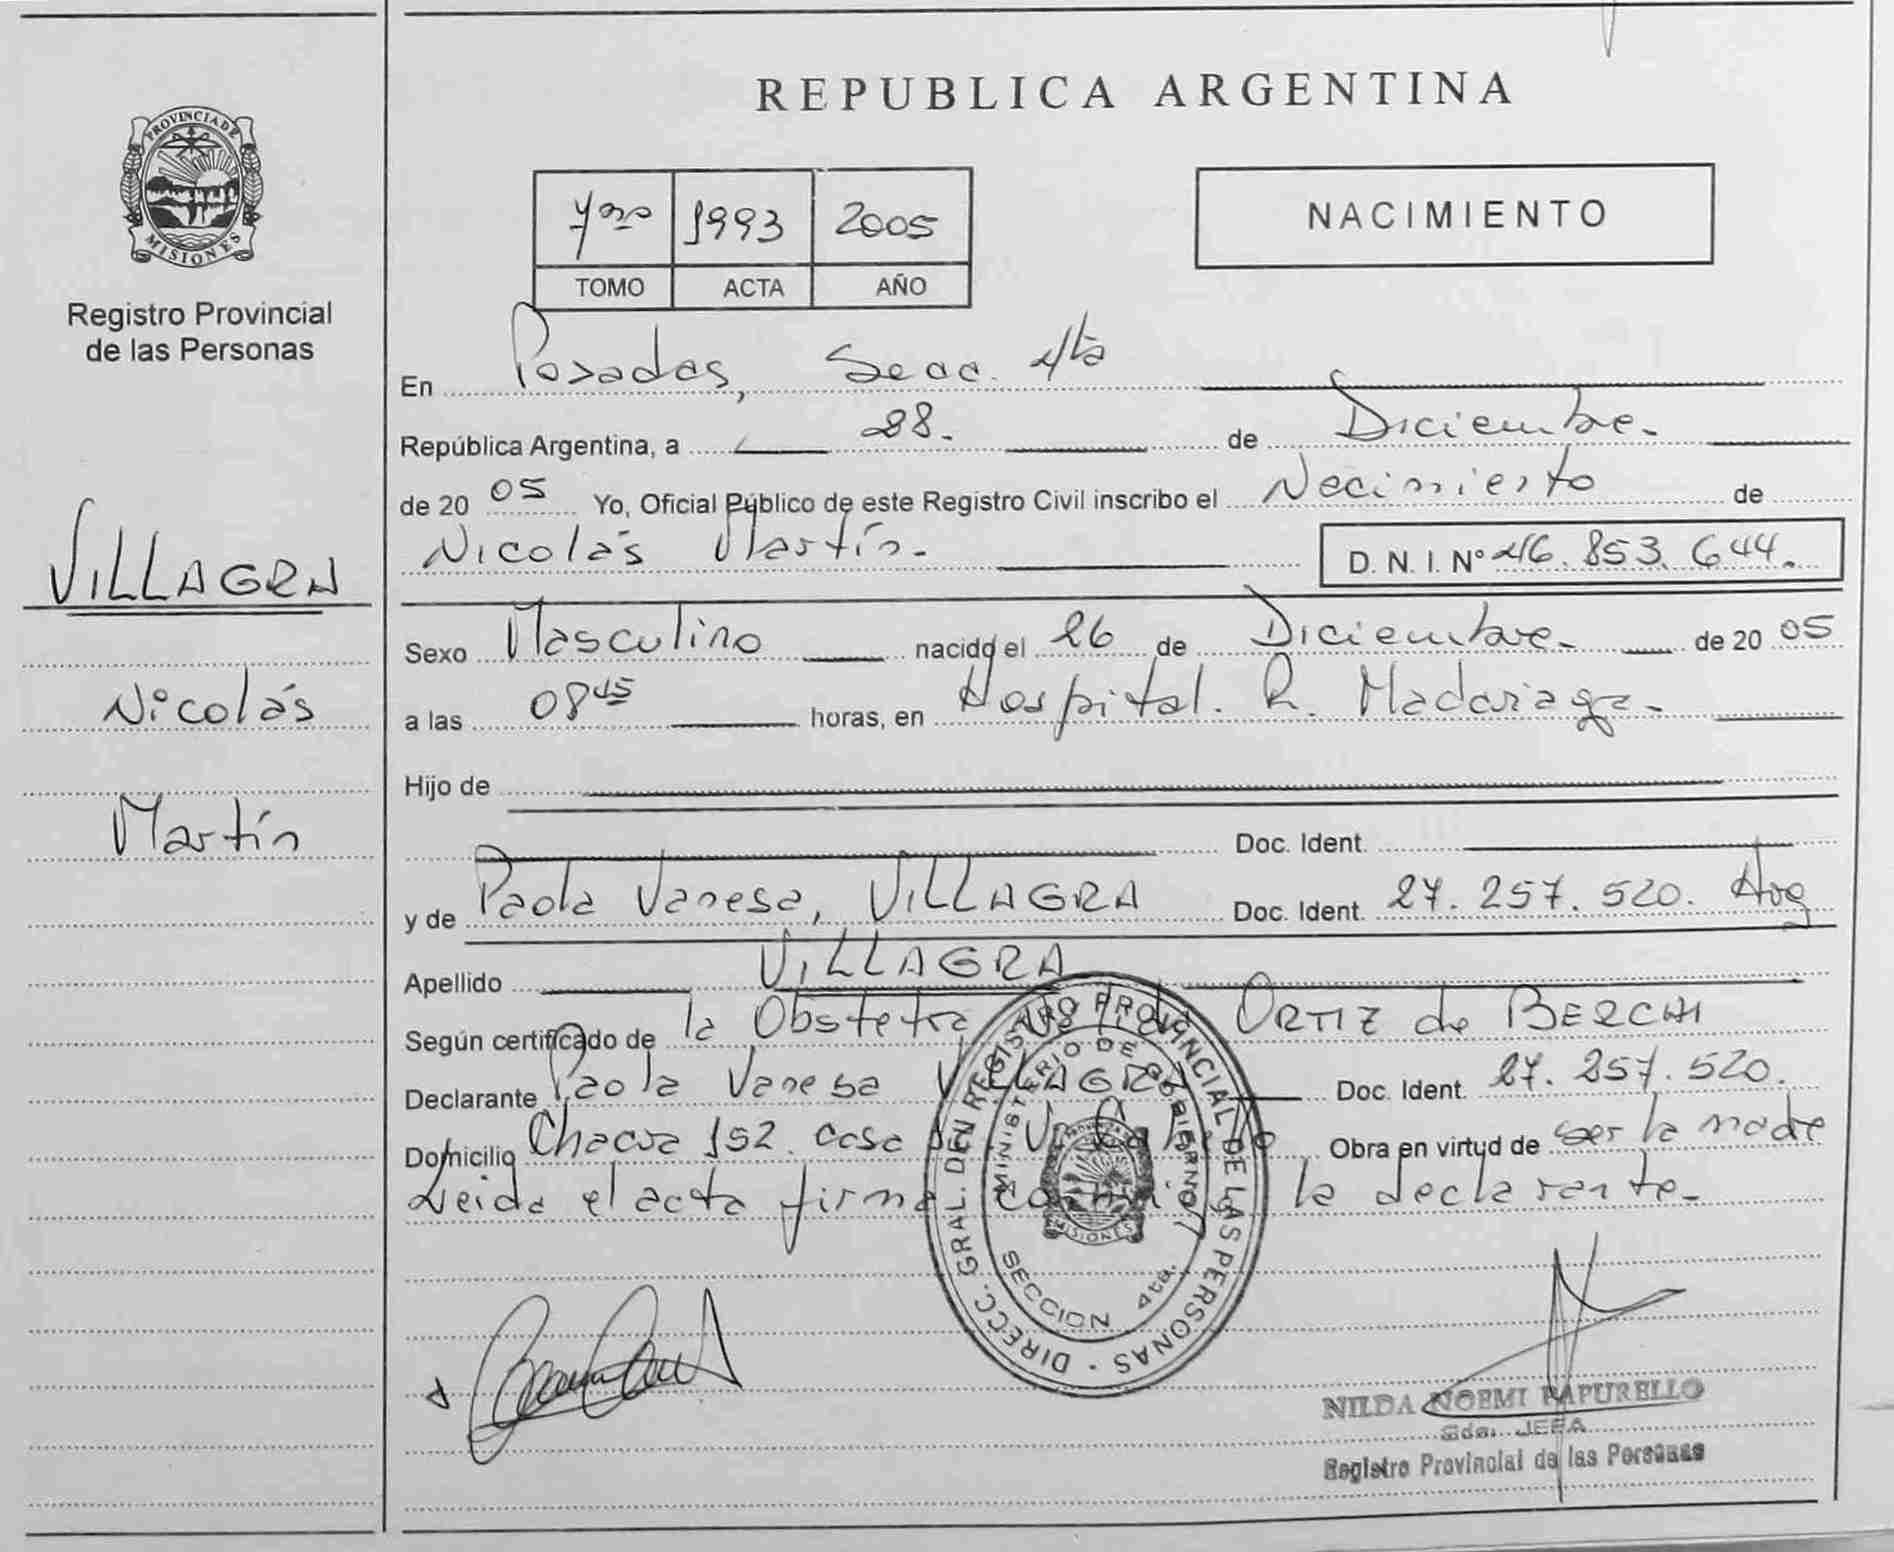 PROVINCIA DE
MISIONES
Registro Provincial
de las Personas
VILLAGRA
Nicolás
Martín
REPUBLICA ARGENTINA
1993 2005
TOMO ACTA AÑO
NACIMIENTO
En Posadas, Secc. 4ta
República Argentina, a 28. de Diciembre.
de 20 05 Yo, Oficial Público de este Registro Civil inscribo el Nacimiento de
Nicolás Martín. D. N. I. Nº 46.853.644.
Sexo Masculino nacido el 26 de Diciembre. de 20 05
a las 08 45 horas, en Hospital. R. Madariaga.
Hijo de
Doc. Ident.
y de Paola Vanesa, VILLAGRA Doc. Ident. 27.257.520. Arg
Apellido VILLAGRA
Según certificado de la Obstetra ORTIZ de
Declarante Paola Vanesa VILLAGRA Doc. Ident. 27.257.520.
Domicilio Chacra 152. casa Obra en virtud de ser la madre
Leida el acta firma conmigo la declarante.
DIRECC. GRAL. DEL REGISTRO PROVINCIAL DE LAS PERSONAS
MINISTERIO DE GOBIERNO
MISIONES
SECCION 4ta.
NILDA NOEMI PAPURELLO
JEFA
Registro Provincial de las Personas